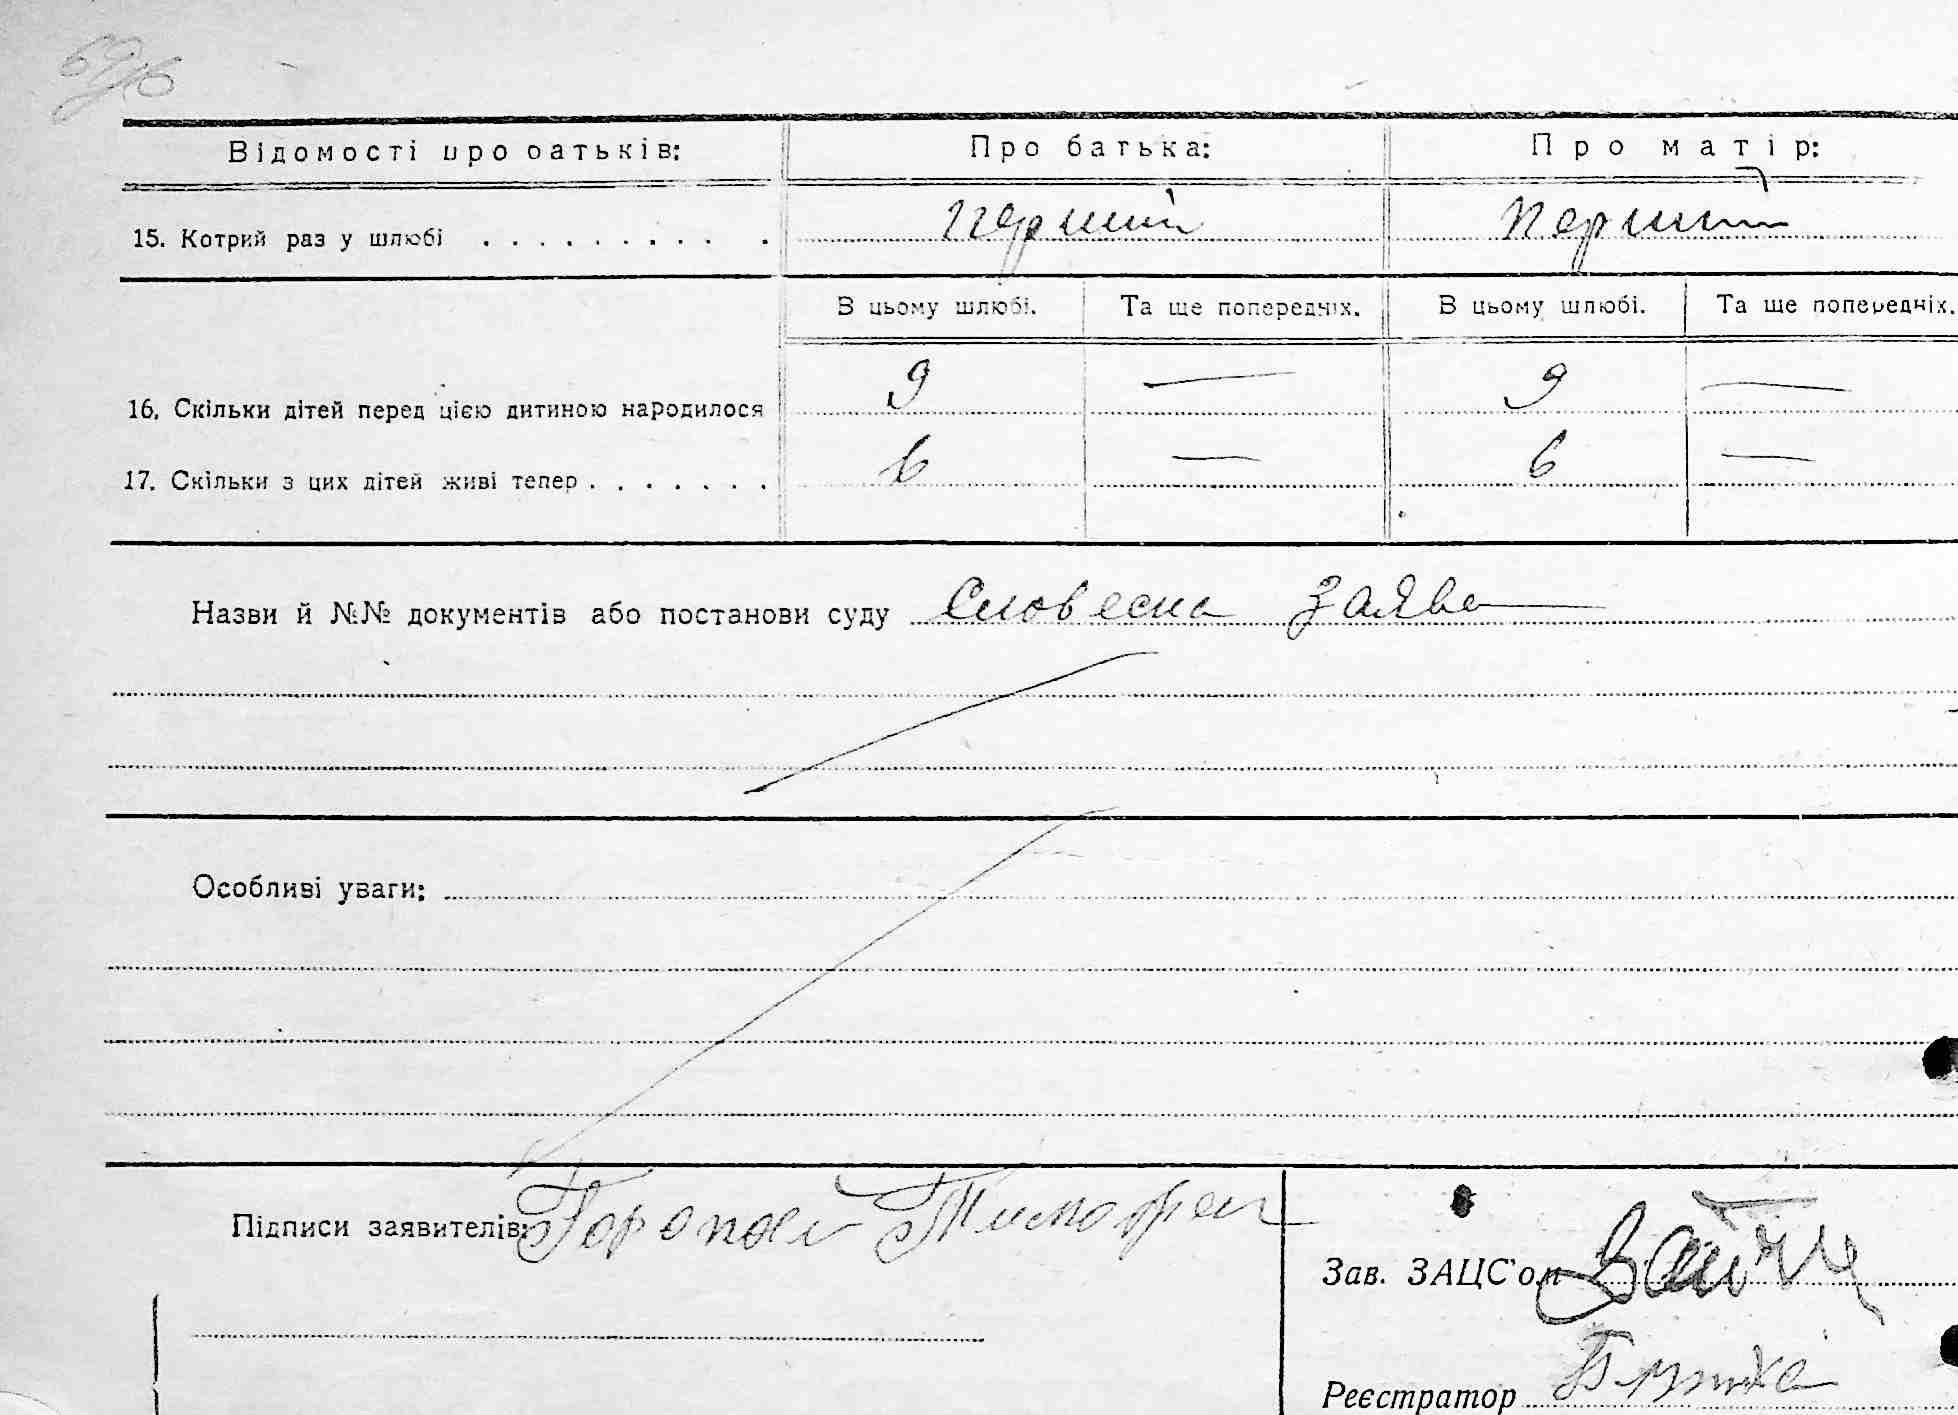 Відомості про батьків: Про батька: Про матір:
15. Котрий раз у шлюбі . . . . . . . . . . перший перший
В цьому шлюбі. Та ще попередніх. В цьому шлюбі. Та ще попередніх.
16. Скільки дітей перед цією дитиною народилося 9 — 9 —
17. Скільки з цих дітей живі тепер . . . . . . . 6 — 6 —
Назви й №№ документів або постанови суду Словесна заява
Особливі уваги:
Підписи заявителів: Горопай Тимофей
Зав. ЗАЦС'ом
Реєстратор